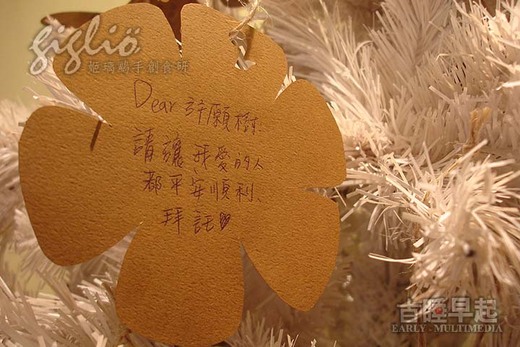 giglio
姬琦鷄手創食研
Dear 許願樹、
請讓我愛的人
都平安順利、
拜託♥
百睡早起
EARLY - MULTIMEDIA